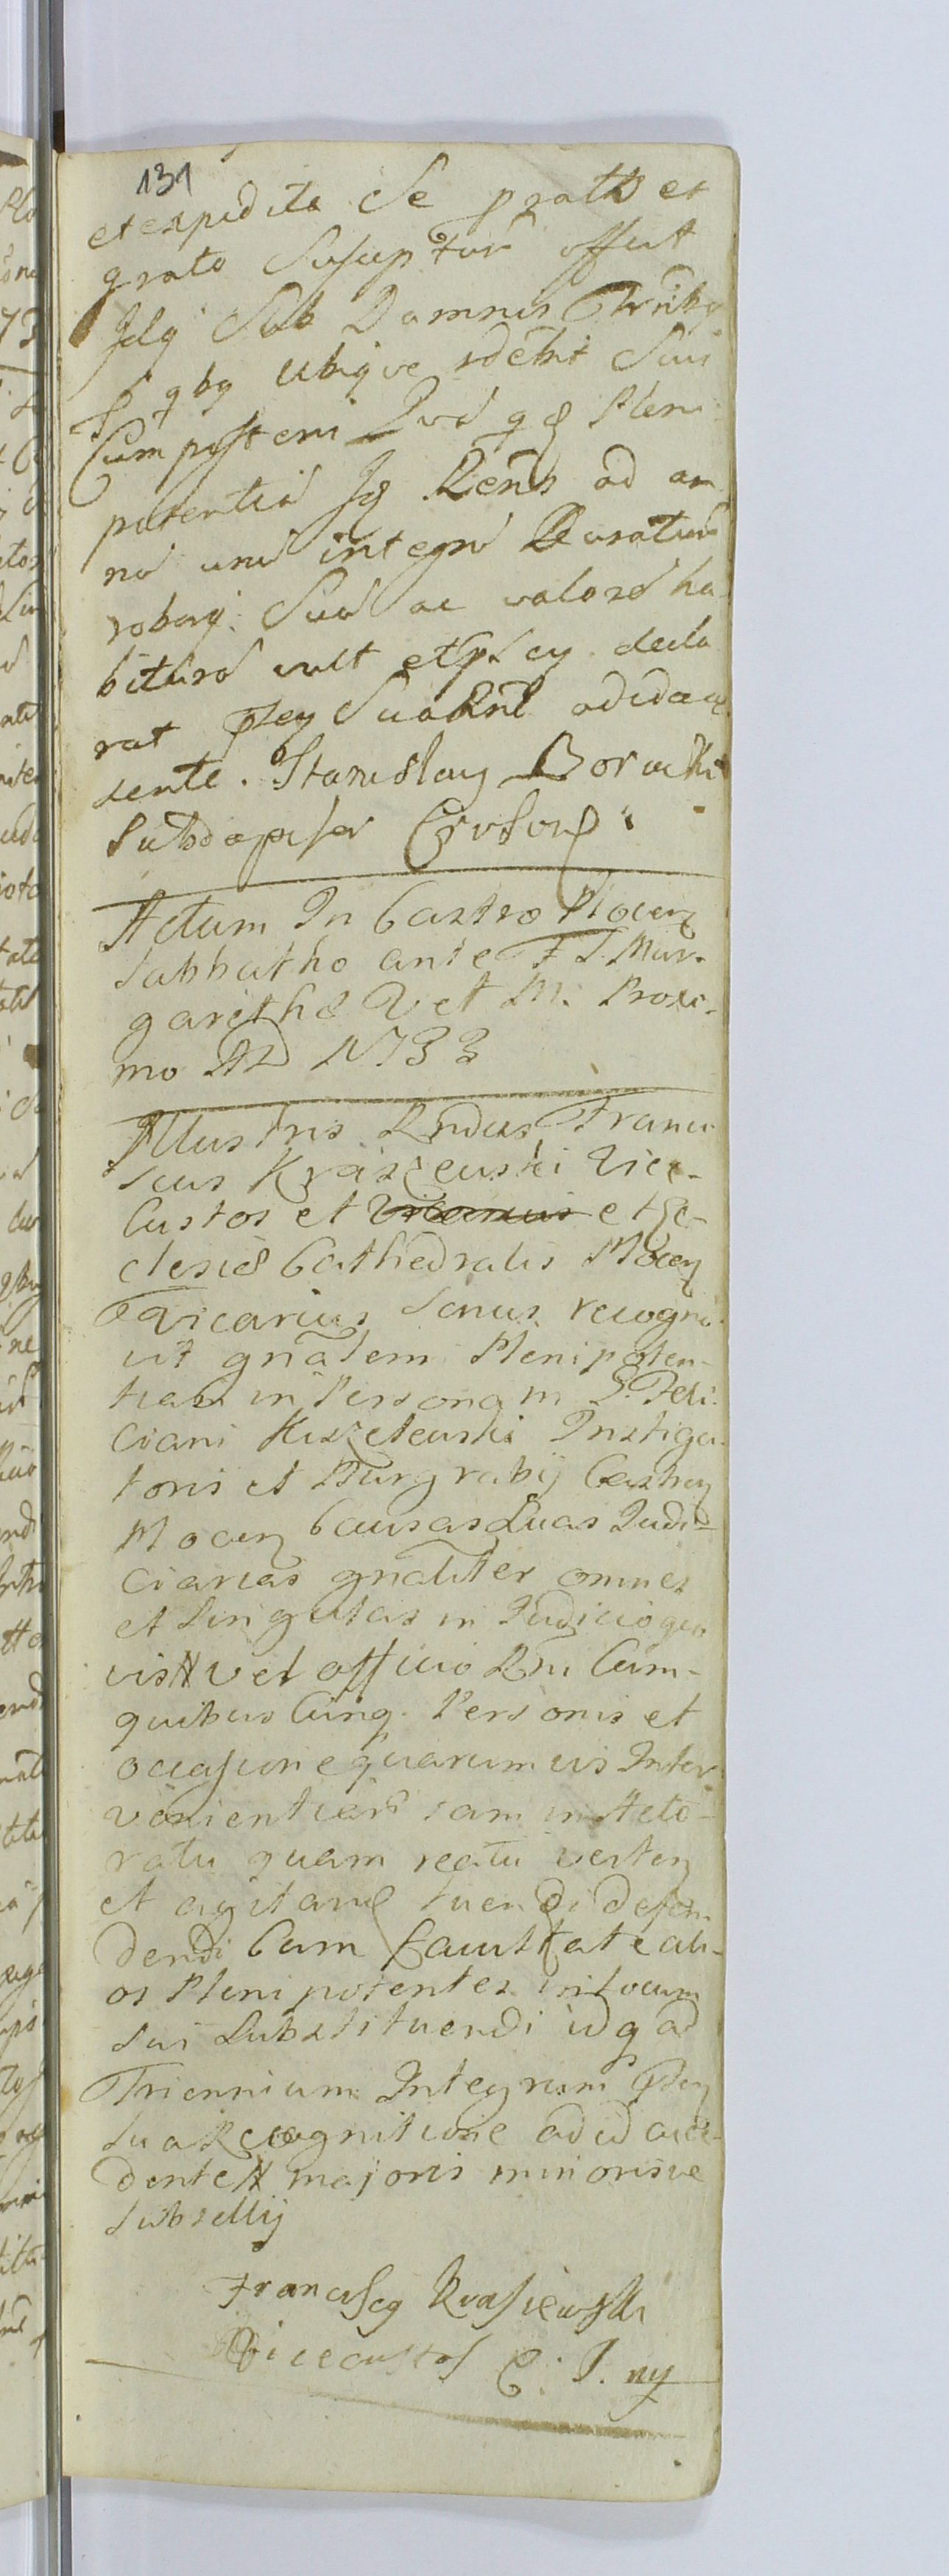 131
et expedita Se gratd et
grato Suscepturd offert
Idq Sub Damnis Terrestribq
S qbq ubiqve rdebit Suis
Cum posteri Qvd q g Pleni
potentid Jg Rends ad an
nd und integrd Duraturd
roborq Sud ac valord ha
biturd vult etpscy decla
rat pscy Sua Rnd adidacce
dente. Stanislaus Boracki
Subdapifer Crusvic
Actum In Castro Plocen
Sabbatho ante F S. Mar-
garethæ V et M. Proxi-
mo AD 1733
Illustris Rndus Franci
scus Kraszewski Vice-
Custos et et Ec-
clesiæ Cathedralis Plocen
Vicarius Sanus recogno
vit gnalem Plenipoten-
tiam in Personam G. Feli
ciani Kiszelewski Instiga-
toris et Burgrabij Castren
Plocen Causas Suas Judi-
ciarias gnaliter omnes
et Singulas in Judicio quo
vis # vel officio Rni Cum-
quibus Cunq. Personis et
occasione quarumvis Inter
venientiarum tam in Acto-
ratu quam reatu verten
et agitand tuendi defen
dendi Cum facultate ali-
os Plenipotentes in locum
sui Substituendi idq ad
Triennium Integrum pscy
sua Recognitione ad id acce-
dente # majoris minorisve
Subsellij
Franciscq Krasiewski
Vicecustos C. P. mp